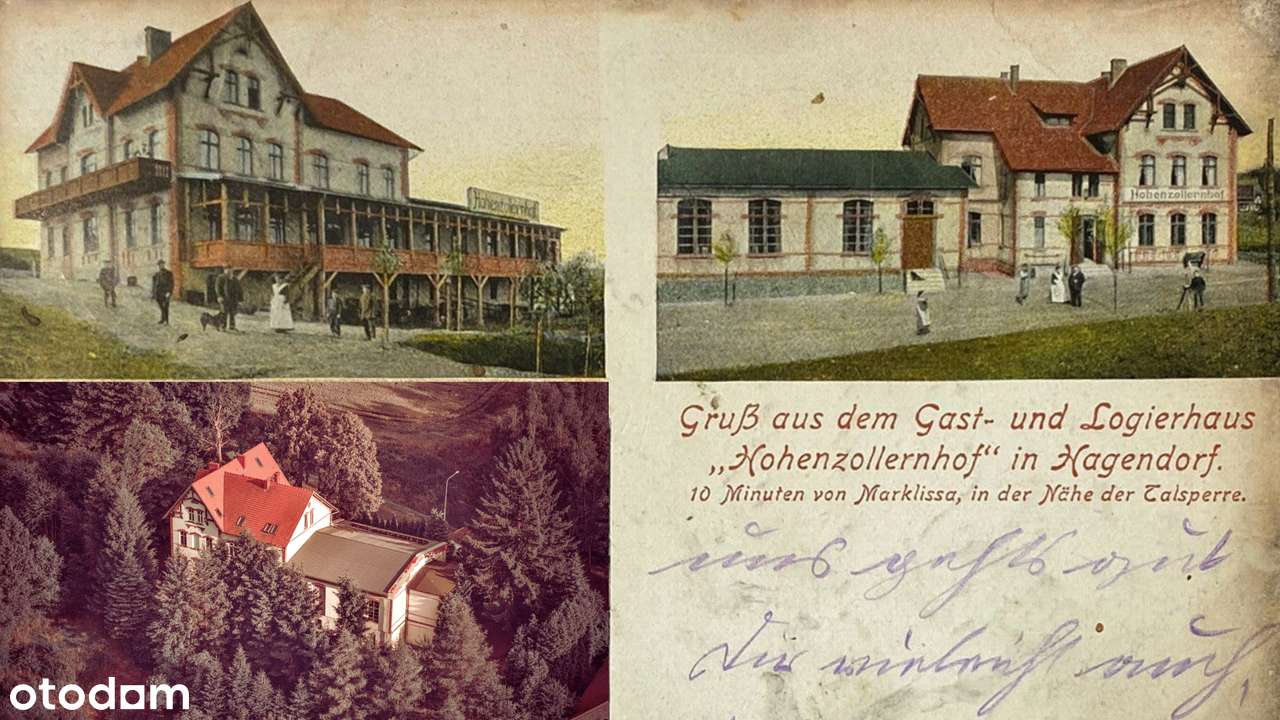 Hohenzollernhof
Hohenzollernhof
Gruß aus dem Gast- und Logierhaus
„Hohenzollernhof“ in Hagendorf.
10 Minuten von Marklissa, in der Nähe der Talsperre.
uns gehts gut
Dir vieleicht auch,
otodom